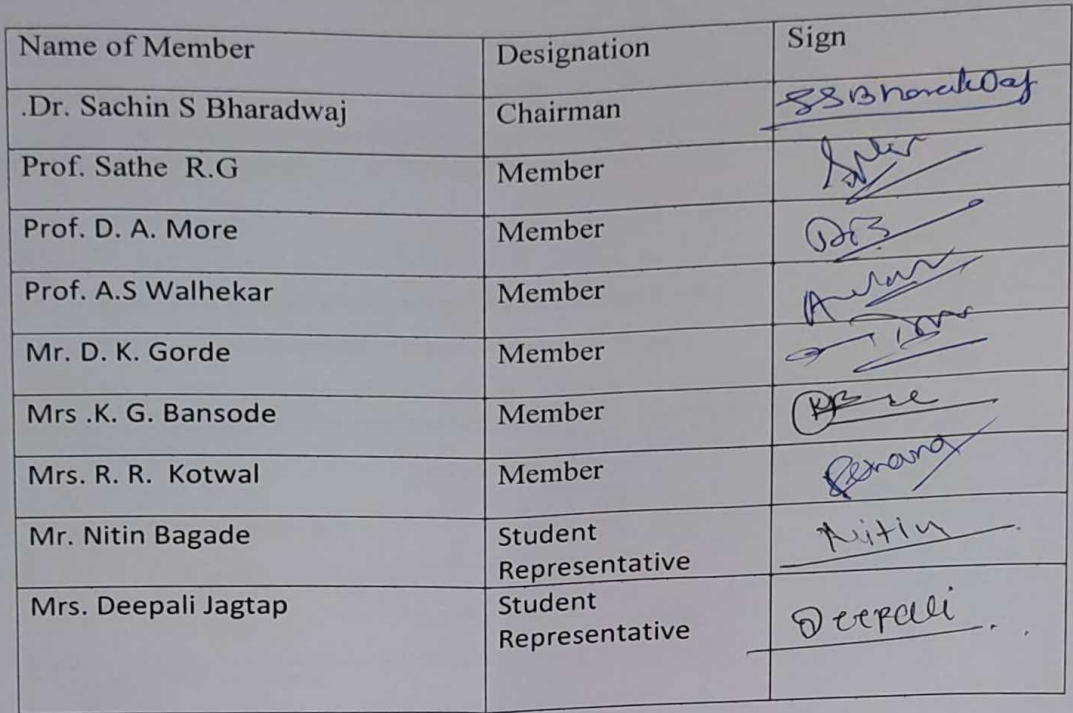 Name of Member Designation Sign
.Dr. Sachin S Bharadwaj Chairman SSBharadwaj
Prof. Sathe R.G Member
Prof. D. A. More Member
Prof. A.S Walhekar Member
Mr. D. K. Gorde Member
Mrs .K. G. Bansode Member
Mrs. R. R. Kotwal Member
Mr. Nitin Bagade Student Nitin
Representative
Mrs. Deepali Jagtap Student Deepali
Representative